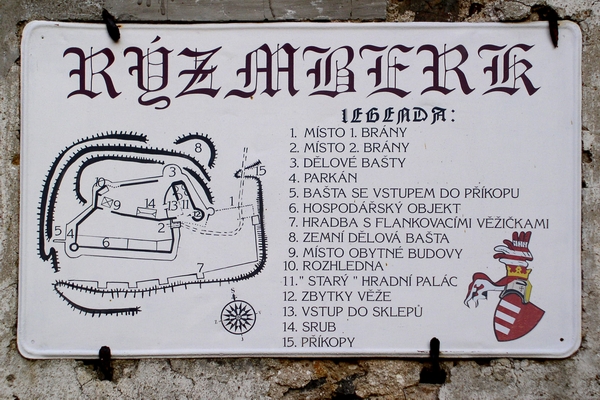 RÝZMBERK
LEGENDA:
1. MÍSTO 1. BRÁNY
2. MÍSTO 2. BRÁNY
3. DĚLOVÉ BAŠTY
4. PARKÁN
5. BAŠTA SE VSTUPEM DO PŘÍKOPU
6. HOSPODÁŘSKÝ OBJEKT
7. HRADBA S FLANKOVACÍMI VĚŽIČKAMI
8. ZEMNÍ DĚLOVÁ BAŠTA
9. MÍSTO OBYTNÉ BUDOVY
10. ROZHLEDNA
11. " STARÝ " HRADNÍ PALÁC
12. ZBYTKY VĚŽE
13. VSTUP DO SKLEPŮ
14. SRUB
15. PŘÍKOPY
8
3
15
9
14
13
11
1
2
5
4
6
7
S